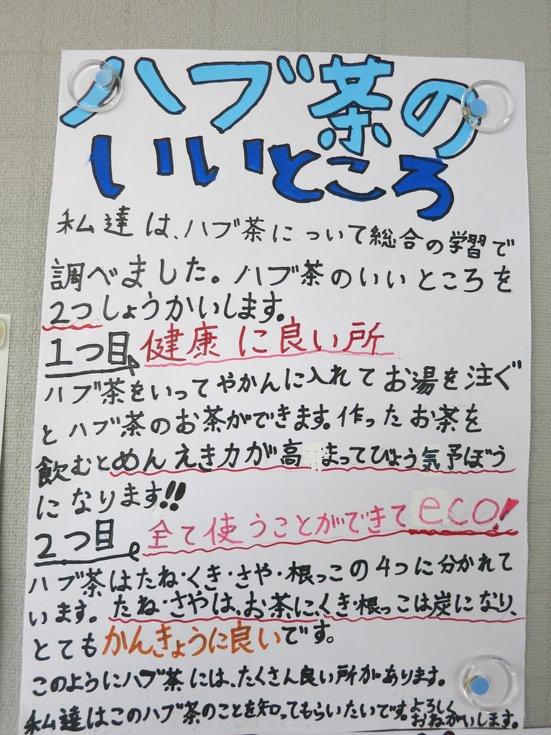 ハブ茶の
いいところ
私達は、ハブ茶について総合の学習で
調べました。ハブ茶のいいところを
2つしょうかいします。
1つ目 健康に良い所
ハブ茶をいってやかんに入れてお湯を注ぐ
とハブ茶のお茶ができます。作ったお茶を
飲むとめんえき力が高まってびょう気予ぼう
になります!!
2つ目 全て使うことができてeco!
ハブ茶はたね・くき・さや・根っこの4つに分かれて
います。たね・さやは、お茶に、くき・根っこは炭になり、
とてもかんきょうに良いです。
このようにハブ茶には、たくさん良い所があります。
私達はこのハブ茶のことを知ってもらいたいです。よろしく
おねがいします。